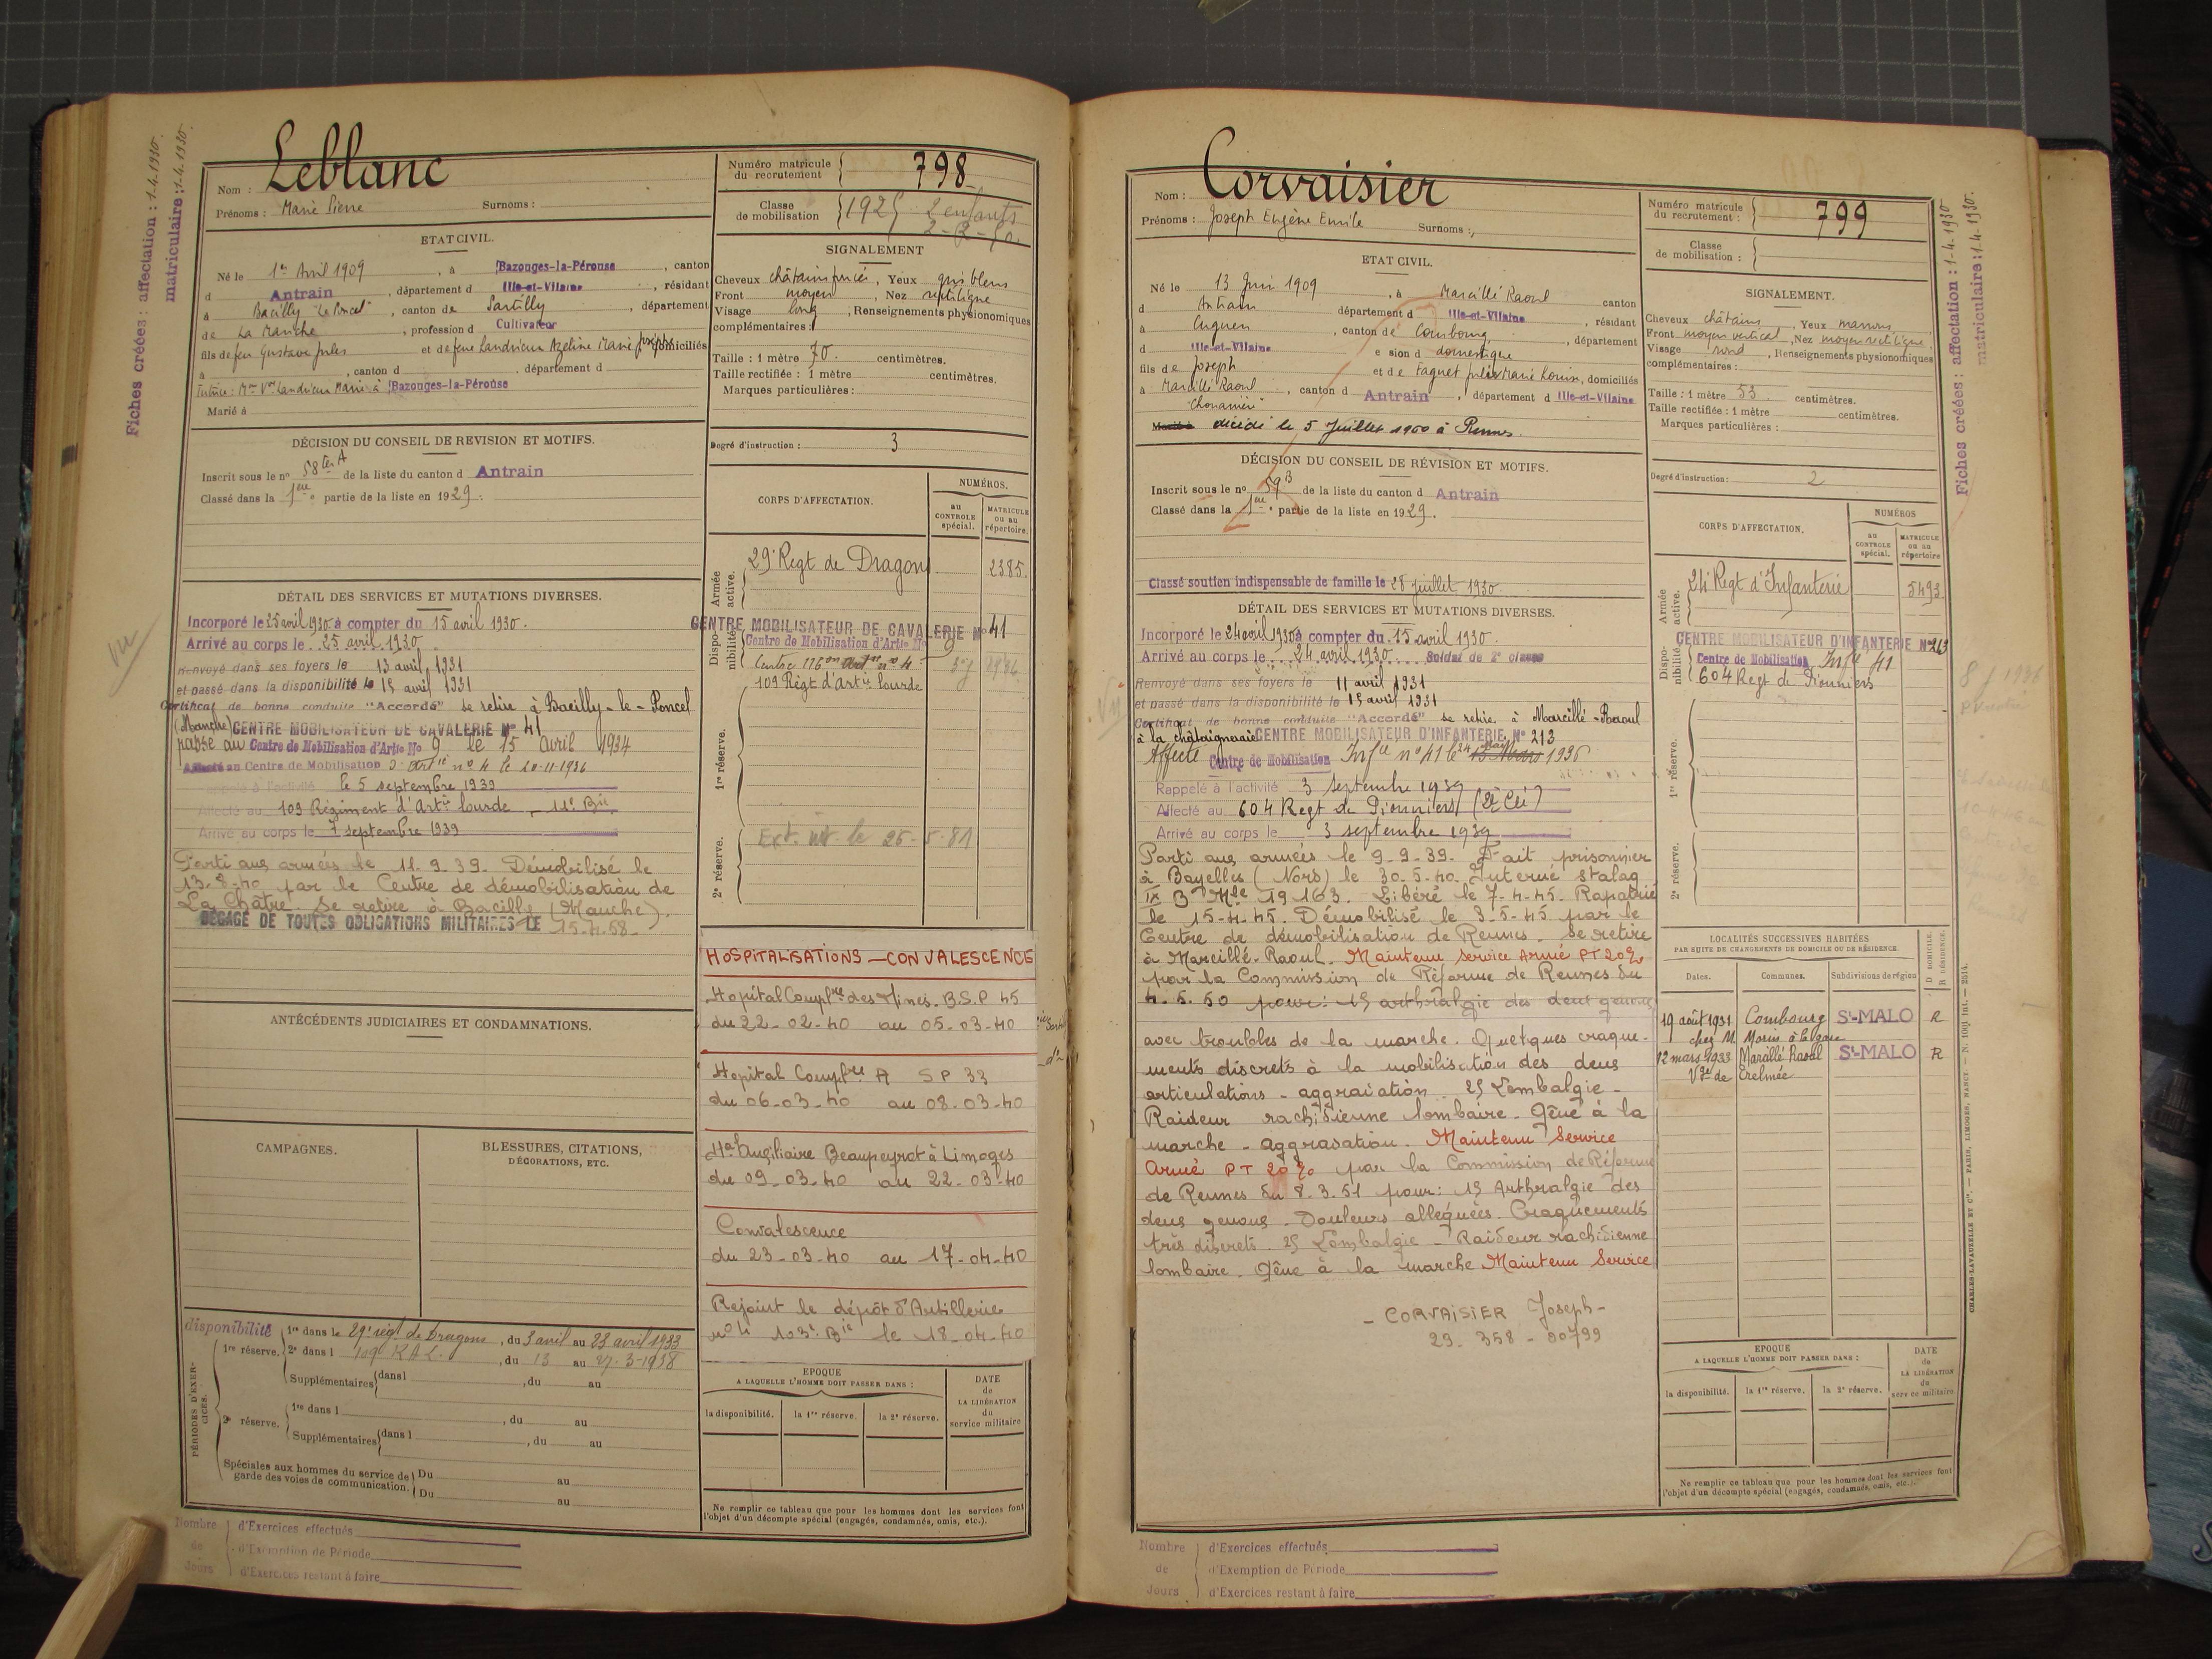 Fiches créées : affectation : 1-4-1930.
matriculaire : 1-4-1930.
Nom : Leblanc
Prénoms : Marie Pierre Surnoms :
Numéro matricule du recrutement 798
Classe de mobilisation 1925 2 enfants
ETAT CIVIL.
Né le 1er Avril 1909, à Bazouges-la-Pérouse, canton
d Antrain, département d Ille-et-Vilaine, résidant
à Bacilly "Le Poncel", canton de Sartilly, département
de La Manche, profession d Cultivateur
fils de feu Gustave Jules et de feue Landrieux Azeline Marie Josèphe domiciliés
à , canton d , département d
Tutrice : Mme Vve Landrieux Marie à Bazouges-la-Pérouse
Marié à
SIGNALEMENT
Cheveux châtain foncé, Yeux gris bleus
Front moyen, Nez rectiligne
Visage long, Renseignements physionomiques
complémentaires :
Taille : 1 mètre 70. centimètres.
Taille rectifiée : 1 mètre centimètres.
Marques particulières :
Degré d'instruction : 3
DÉCISION DU CONSEIL DE REVISION ET MOTIFS.
Inscrit sous le no 58 ter A de la liste du canton d Antrain
Classé dans la 1ère partie de la liste en 1929.
CORPS D'AFFECTATION.
NUMÉROS.
au CONTROLE spécial.
MATRICULE ou au répertoire.
Armée active.
29e Régt de Dragons 2385.
Disponibilité
CENTRE MOBILISATEUR DE CAVALERIE No 41
Centre de Mobilisation d'Artie No 9
109 Régt d'Artie lourde
1re réserve.
2e réserve.
DÉTAIL DES SERVICES ET MUTATIONS DIVERSES.
Incorporé le 25 avril 1930 à compter du 15 avril 1930.
Arrivé au corps le 25 avril 1930
Renvoyé dans ses foyers le 13 avril 1931
et passé dans la disponibilité le 15 avril 1931
Certificat de bonne conduite "Accordé" se retire à Bacilly-le-Poncel
(Manche) CENTRE MOBILISATEUR DE CAVALERIE No 41
passé au Centre de Mobilisation d'Artie No 9 le 15 avril 1934
Affecté au Centre de Mobilisation d'Artie no 4 le 20-11-1936
Rappelé à l'activité le 5 septembre 1939
Affecté au 109 Régiment d'Artie lourde 11e Bie
Arrivé au corps le 7 septembre 1939
Parti aux armées le 11.9.39. Démobilisé le
13-8-40 par le Centre de démobilisation de
La Châtre. Se retire à Bacilly (Manche).
DÉGAGÉ DE TOUTES OBLIGATIONS MILITAIRES LE 15-4-58-
ANTÉCÉDENTS JUDICIAIRES ET CONDAMNATIONS.
CAMPAGNES.
BLESSURES, CITATIONS,
DÉCORATIONS, ETC.
HOSPITALISATIONS — CONVALESCENCE
Hopital Complre des Mines. B.S.P 45
du 22-02-40 au 05-03-40
Hopital Complre A S P 33
du 06-03-40 au 08-03-40
Hal Auxiliaire Beaupeyrat à Limoges
du 09-03-40 au 22-03-40
Convalescence
du 23-03-40 au 17-04-40
Rejoint le dépôt d'Artillerie
no 4 103e Bie le 18-04-40
PÉRIODES D'EXERCICES.
disponibilité
1re réserve.
1re dans le 29e régt de Dragons, du 3 avril au 23 avril 1933
2e dans l 109 R.A.L., du 13 au 27-3-1938
Supplémentaires dans l , du au
2e réserve.
1re dans l , du au
Supplémentaires dans l , du au
Spéciales aux hommes du service de garde des voies de communication. Du au
Du au
EPOQUE
A LAQUELLE L'HOMME DOIT PASSER DANS :
la disponibilité. la 1re réserve. la 2e réserve.
DATE de LA LIBÉRATION du service militaire
Ne remplir ce tableau que pour les hommes dont les services font
l'objet d'un décompte spécial (engagés, condamnés, omis, etc.).
Nombre de Jours
d'Exercices effectués
d'Exemption de Période
d'Exercices restant à faire
Nom : Corvaisier
Prénoms : Joseph Eugène Emile Surnoms :
Numéro matricule du recrutement : 799
Classe de mobilisation :
Fiches créées : affectation : 1-4-1930
matriculaire : 1-4-1930.
ETAT CIVIL.
Né le 13 Juin 1909, à Marcillé Raoul canton
d Antrain département d Ille-et-Vilaine, résidant
à Cuguen, canton de Combourg, département
d Ille-et-Vilaine e sion d domestique
fils de Joseph et de Faguet Julie Marie Louise, domiciliés
à Marcillé Raoul, canton d Antrain, département d Ille-et-Vilaine
Marié à décédé le 5 Juillet 1960 à Rennes.
SIGNALEMENT.
Cheveux châtains, Yeux marrons
Front moyen vertical, Nez moyen rectiligne,
Visage rond, Renseignements physionomiques
complémentaires :
Taille : 1 mètre 53. centimètres.
Taille rectifiée : 1 mètre centimètres.
Marques particulières :
Degré d'instruction : 2
DÉCISION DU CONSEIL DE RÉVISION ET MOTIFS.
Inscrit sous le no 59 B de la liste du canton d Antrain
Classé dans la 1ère partie de la liste en 1929.
Classé soutien indispensable de famille le 28 Juillet 1930.
CORPS D'AFFECTATION.
NUMÉROS
au CONTROLE spécial.
MATRICULE ou au répertoire
Armée active.
24e Régt d'Infanterie 5493.
Disponibilité
CENTRE MOBILISATEUR D'INFANTERIE No 213
Centre de Mobilisation Infie 41
604 Regt de Pionniers
1re réserve.
2e réserve.
DÉTAIL DES SERVICES ET MUTATIONS DIVERSES.
Incorporé le 24 avril 1930 à compter du 15 avril 1930.
Arrivé au corps le 24 avril 1930 Soldat de 2e classe
Renvoyé dans ses foyers le 11 avril 1931
et passé dans la disponibilité le 15 avril 1931
Certificat de bonne conduite "Accordé" se retire à Marcillé-Raoul
à la châtaigneraie CENTRE MOBILISATEUR D'INFANTERIE No 213
Affecté Centre de Mobilisation Infie no 41 le 24 Mai 1936
Rappelé à l'activité 3 septembre 1939
Affecté au 604 Regt de Pionniers (2e Cie)
Arrivé au corps le 3 septembre 1939
Parti aux armées le 9-9-39. Fait prisonnier
à Bayelles (Nord) le 30.5.40. Interné stalag
IX B Mle 19163. Libéré le 7-4-45. Rapatrié
le 15-4-45. Démobilisé le 3-5-45 par le
Centre de démobilisation de Rennes. Se retire
à Marcillé-Raoul. Maintenu Service Armé PT 20%
par la Commission de Réforme de Rennes du
4.5.50 pour: 1°) arthralgie des deux genoux
avec troubles de la marche. Quelques craque-
ments discrets à la mobilisation des deux
articulations - aggravation. 2°) Lombalgie -
Raideur rachidienne lombaire. Gêne à la
marche - aggravation. Maintenu Service
Armé PT 20% par la Commission de Réforme
de Rennes du 8.3.51 pour: 1°) Arthralgie des
deux genoux. Douleurs alléguées. Craquements
très discrets. 2°) Lombalgie - Raideur rachidienne
lombaire. Gêne à la marche Maintenu Service
- CORVAISIER Joseph -
29-358-00799
LOCALITÉS SUCCESSIVES HABITÉES
PAR SUITE DE CHANGEMENTS DE DOMICILE OU DE RÉSIDENCE.
Dates. Communes. Subdivisions de région
D DOMICILE. R RÉSIDENCE.
19 août 1931 Combourg St-MALO R
12 mars 1933 Marcillé Raoul St-MALO R
EPOQUE
A LAQUELLE L'HOMME DOIT PASSER DANS :
la disponibilité. la 1re réserve. la 2e réserve.
DATE de LA LIBÉRATION du service militaire
Ne remplir ce tableau que pour les hommes dont les services font
l'objet d'un décompte spécial (engagés, condamnés, omis, etc.).
CHARLES-LAVAUZELLE ET Cie. — PARIS, LIMOGES, NANCY
Nombre de Jours
d'Exercices effectués
d'Exemption de Période
d'Exercices restant à faire